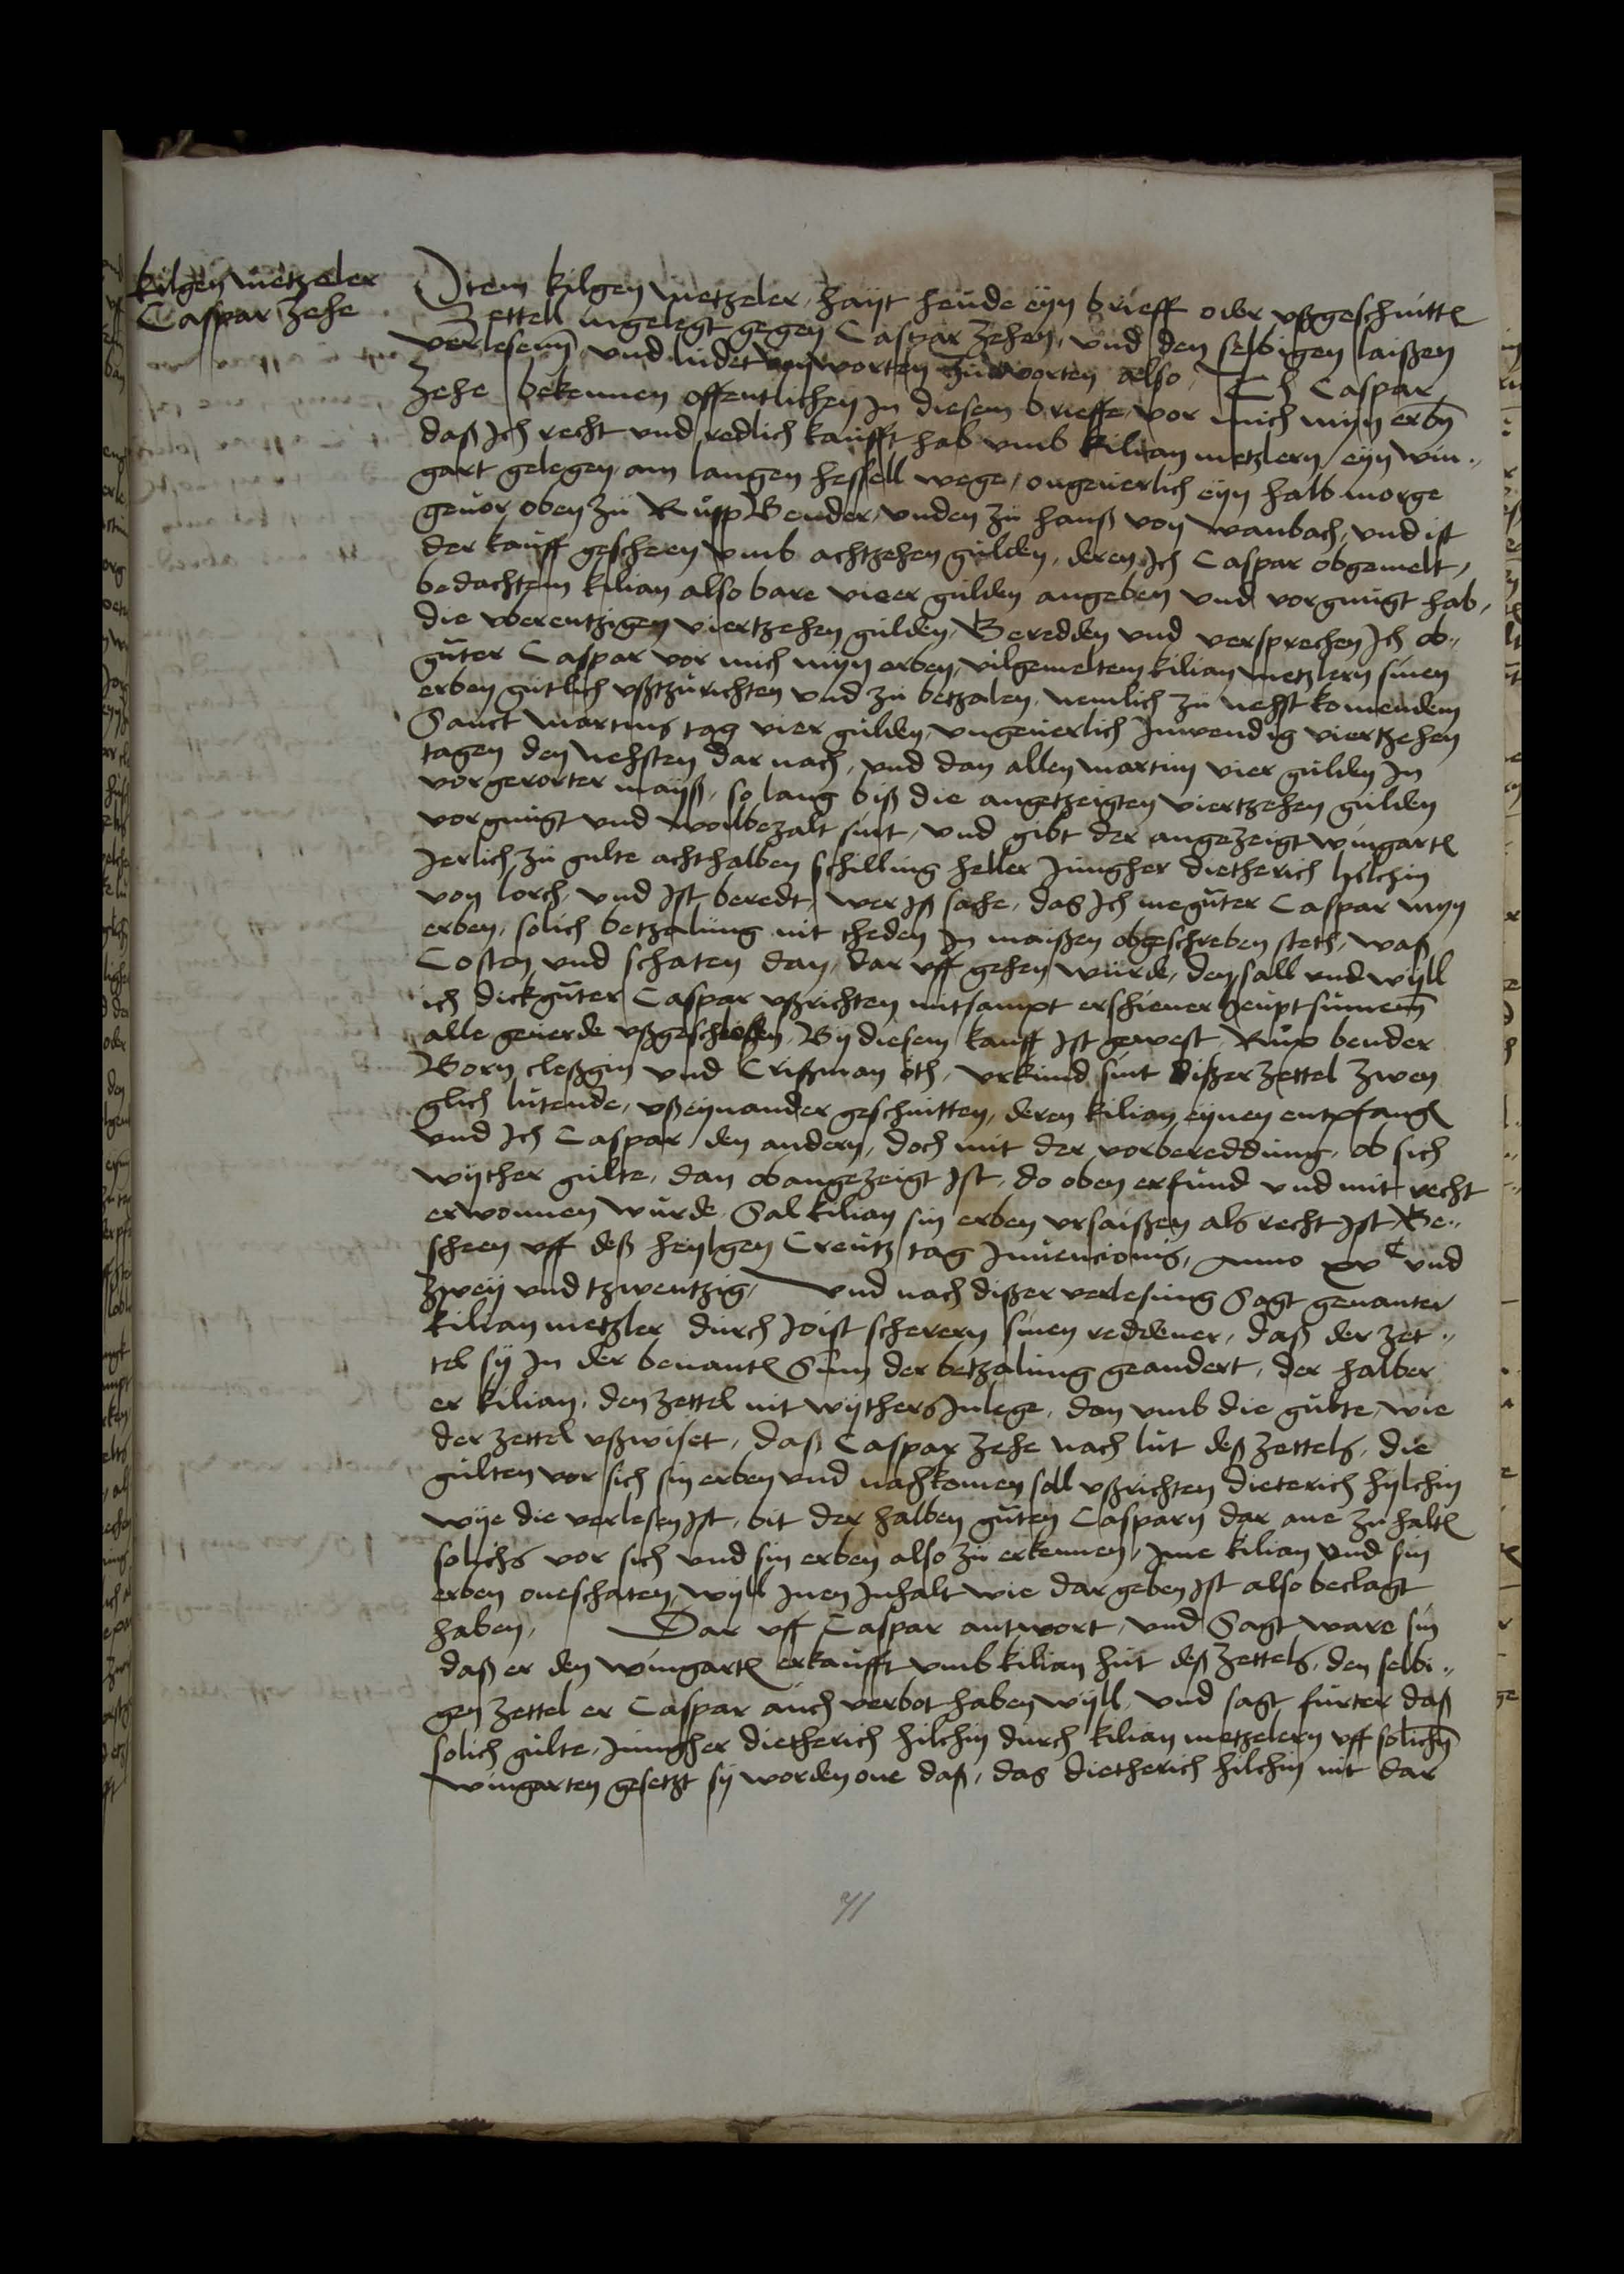 kilgen metzeler
Caspar Zehe
Item kilgen metzeler, hayt heude eyn brieff ober ußgeschnitten
Zettell ingelegt gegen Caspar Zehen, und den selbigen laißen
verlesenn und ludet von worten zu worten also, Ich Caspar
Zehe bekennen offentlichen in diesem brieffe, vor mich myn erben
daß Ich recht und redlich kaufft hab umb kilian metzlern eyn win„
gart gelegen am langen hessell wege, ongeuerlich eyn halb morge
geuor oben zu Rupp Bender, unden zu hanß von wanbach, und ist
der kauff gescheen umb achtzehen gulden, deren Ich Caspar obgemelt,
bedachtem kilian also bare vieer gulden angeben und vorgnugt hab,
die uberentzigen viertzehen gulden, Beredden und versprechen Ich ob„
guter Caspar vor mich myn erben, vilgemeltem kilian metzlern sinen
erben gutlich ußtzurichten und zu betzalen, nemlich zu nehst komendem
Sanct martins tag vier gulden, ungeuerlich Inwendig viertzehen
tagen den nehsten dar nach, und dan allen martini vier gulden In
vorgerorter mayß, so lang biß die angetzeigten viertzehen gulden
vorgnugt und wolbezalt sint, und gibt der angezeigt wingarten
Jerlich zu gulte achthalben schilling heller Jungher dietherich hilchin
von lorch, und Ist beredt, wer Iß sache, das Ich megnuter Caspar myn
erben, solich betzalung nit theden In maißen obgeschreben steth, waß
Costen und schaten dan, dar uff gehen wurde, den sall und wyll
ich dickguter Caspar ußrichten mitsampt erschiener heuptsumem
alle geuerde ußgeschlossen, By diesem kauff Ist gewest Rupp bender
Born cleßgin und Crißman oth, urkund sint dißer zettel zwen
glich lutende, ußeynander geschnitten, deren kilian eynen entpfangen
und Ich Caspar den andern, doch mit der vorbereddung, ob sich
wyther gulte, dan obangezeigt Ist, do oben erfund und mit recht
erwonnen wurde, Sal kilian sin erben ersaißen als recht Ist, Ge„
scheen uff deß heylgen Creutz tag Inuencionis, Anno xvC und
zwey und tzwentzig, Und nach dißer verlesung Sagt genanter
kilian metzler durch Joist scherern sinen reddener, daß der zet„
tel sy In der benanten Sum der betzalung geandert, der halber
er kilian, den zettel nit wythers Inlege, dan umb die gulte, wie
der zettel ußwiset, daß Caspar Zehe nach lut deß zettels, die
gulten vor sich sin erben und nachkomen soll ußrichten dieterich hylchin
wye die verlesen Ist, bit der halben guten Casparn dar ane zu halten
solichs vor sich und sin erben also zu erkennen, Ime kilian und sin
erben oneschaten, wyll Inen Inhalt wie dargeben Ist also beclagt
haben, Dar uff Caspar antwort, und Sagt ware sin
daß er den wingarten erkaufft umb kilian hut deß zettels, den selbi„
gen zettel er Caspar auch verbot haben wyll, und sagt furter daß
solich gulte, Jungher dietherich hilchin durch kilian metzelern uff solichen
wingarten gesetzt sy worden one daß, das dietherich hilchin nit dar